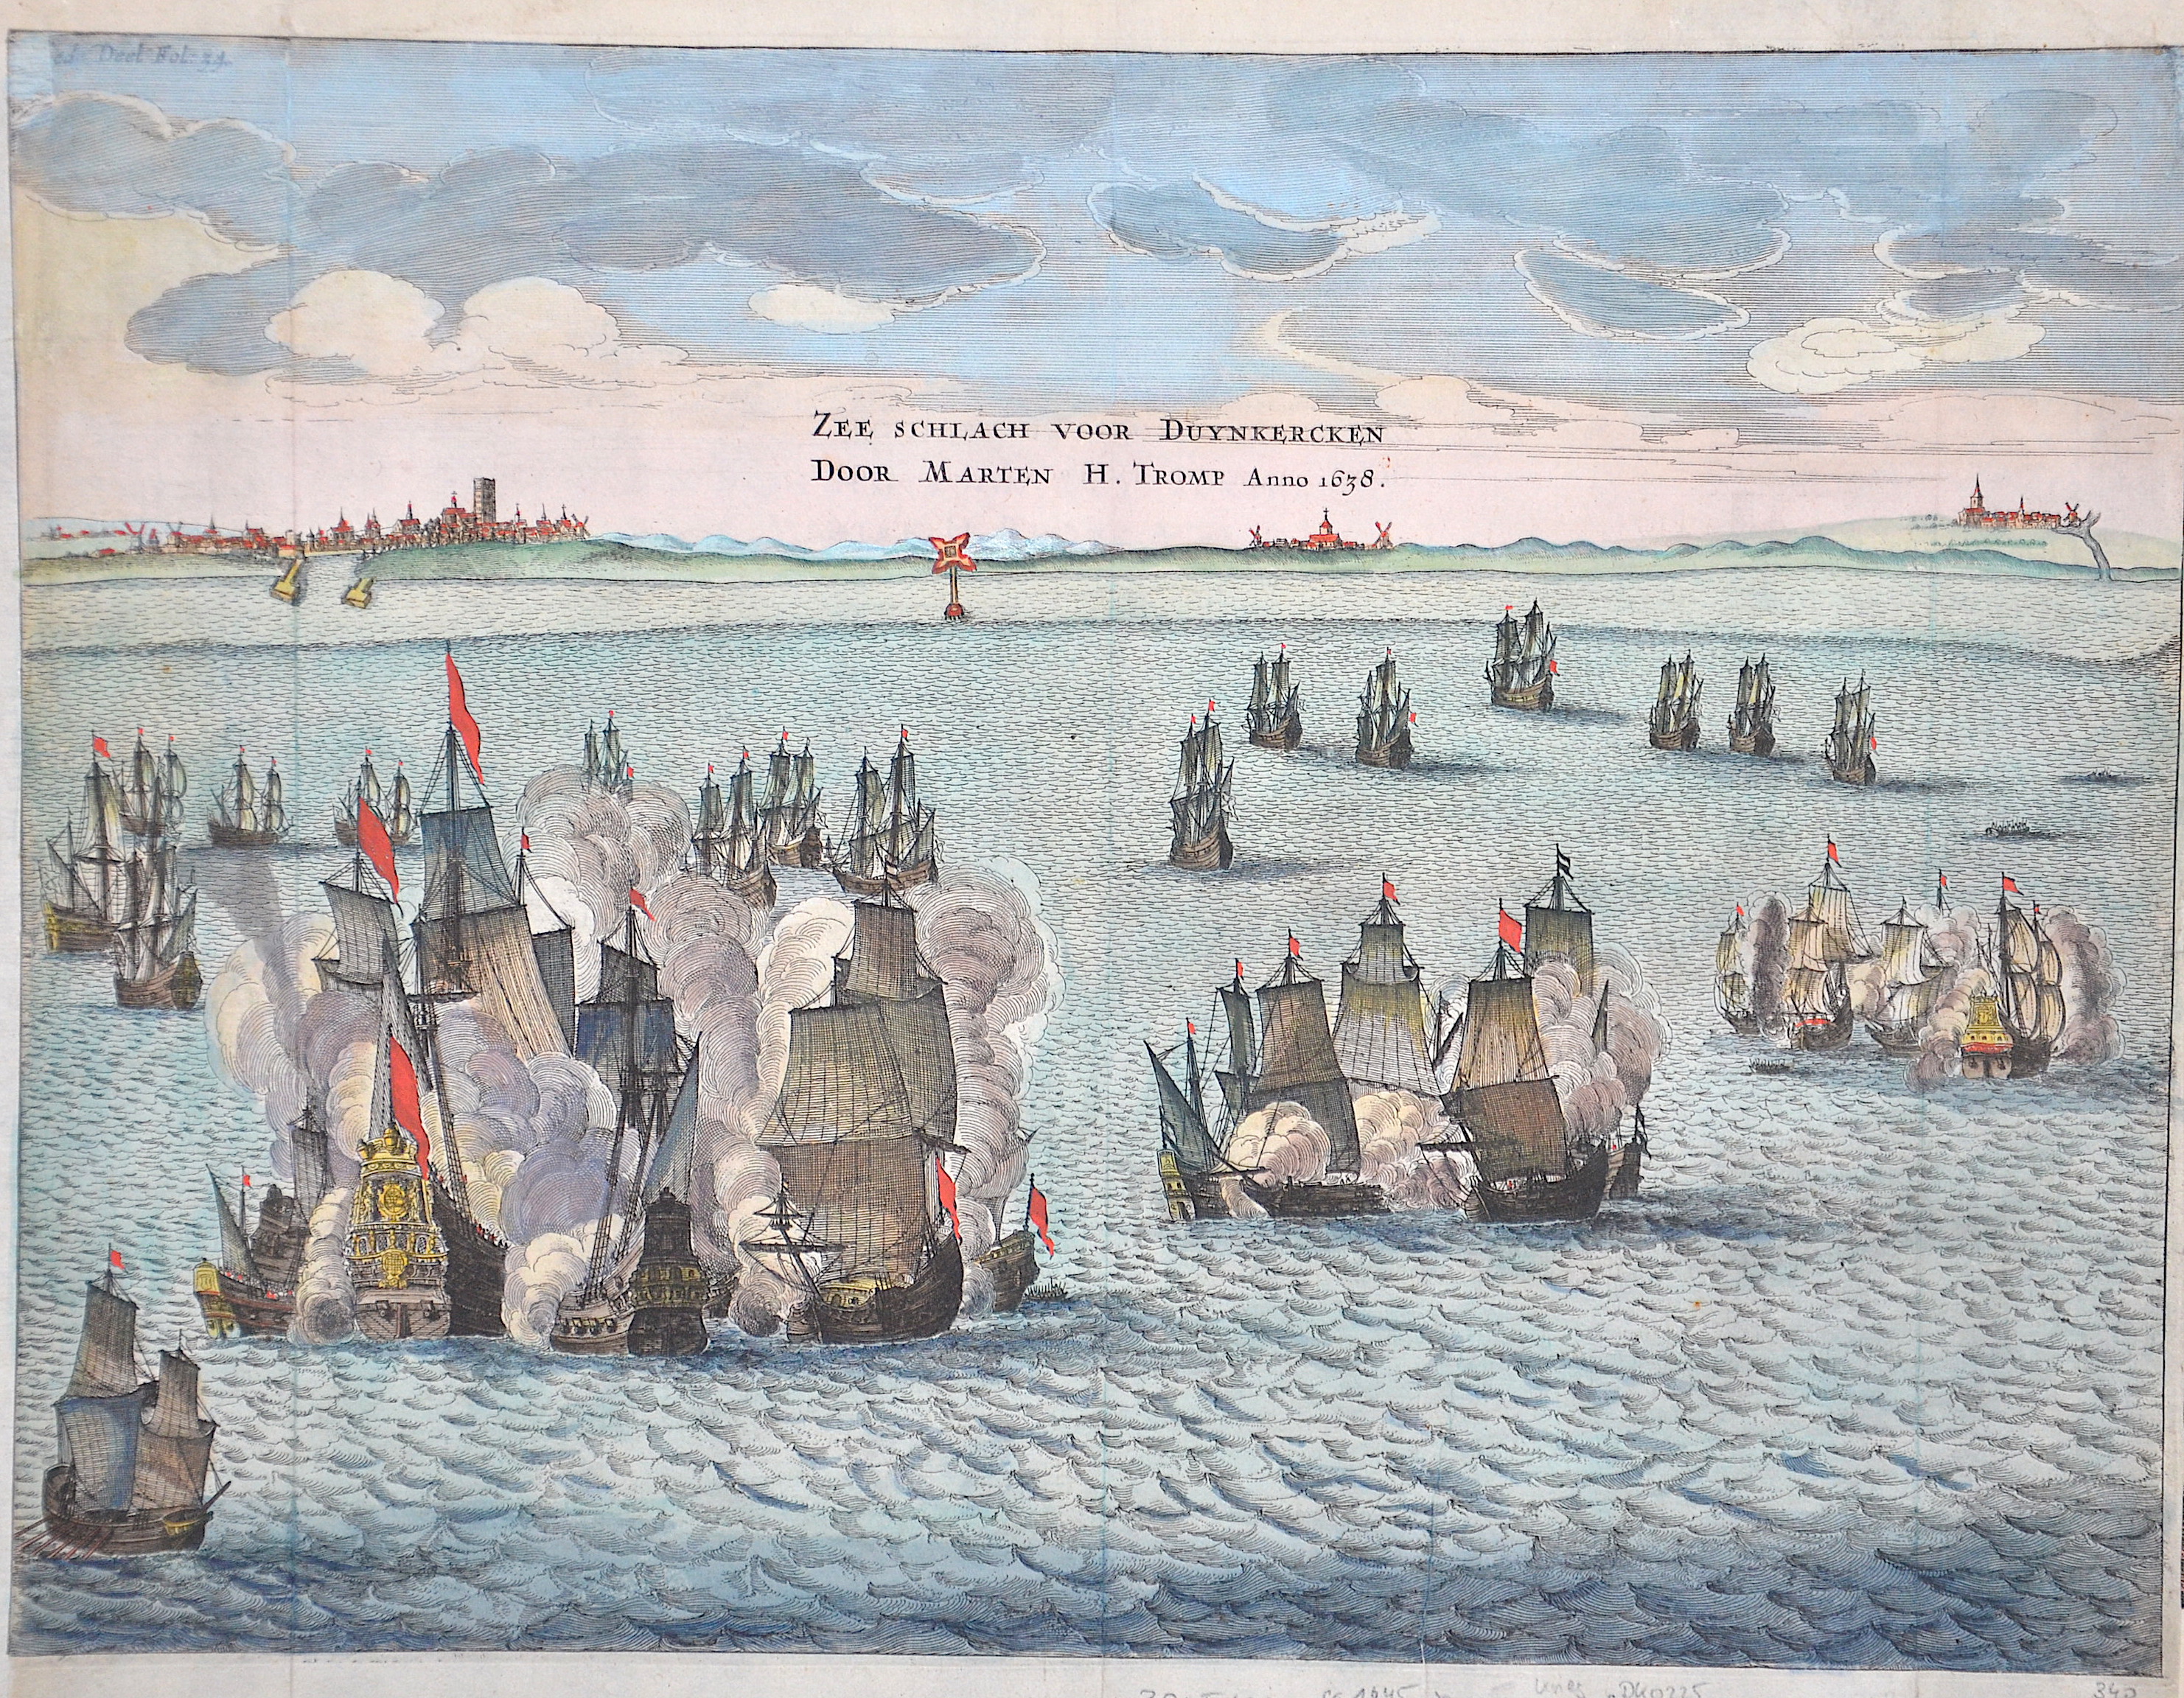 Deel Fol: 39.
ZEE SCHLACH VOOR DUYNKERCKEN
DOOR MARTEN H. TROMP Anno 1638.
DK0225
340